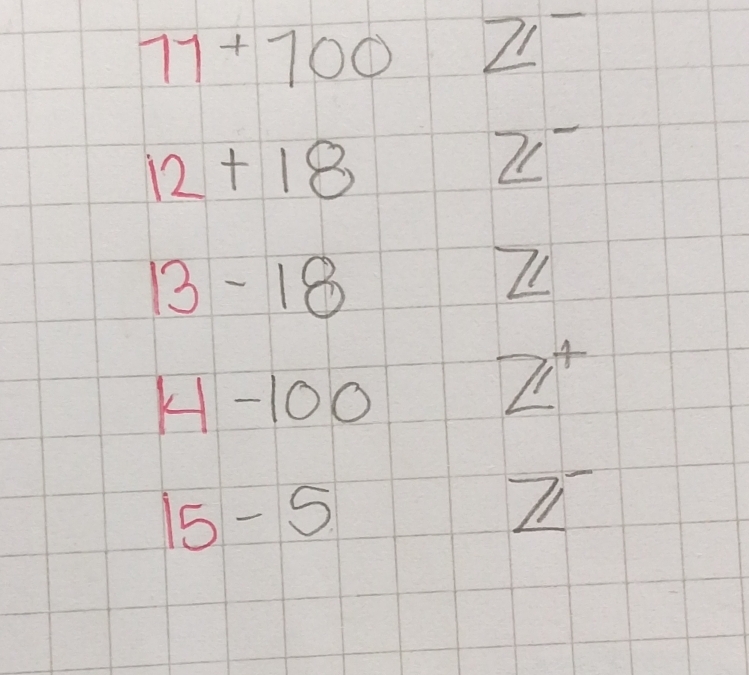 11 + 100 ℤ⁻
12 + 18 ℤ⁻
13 - 18 ℤ
14 - 100 ℤ⁺
15 - 5 ℤ⁻